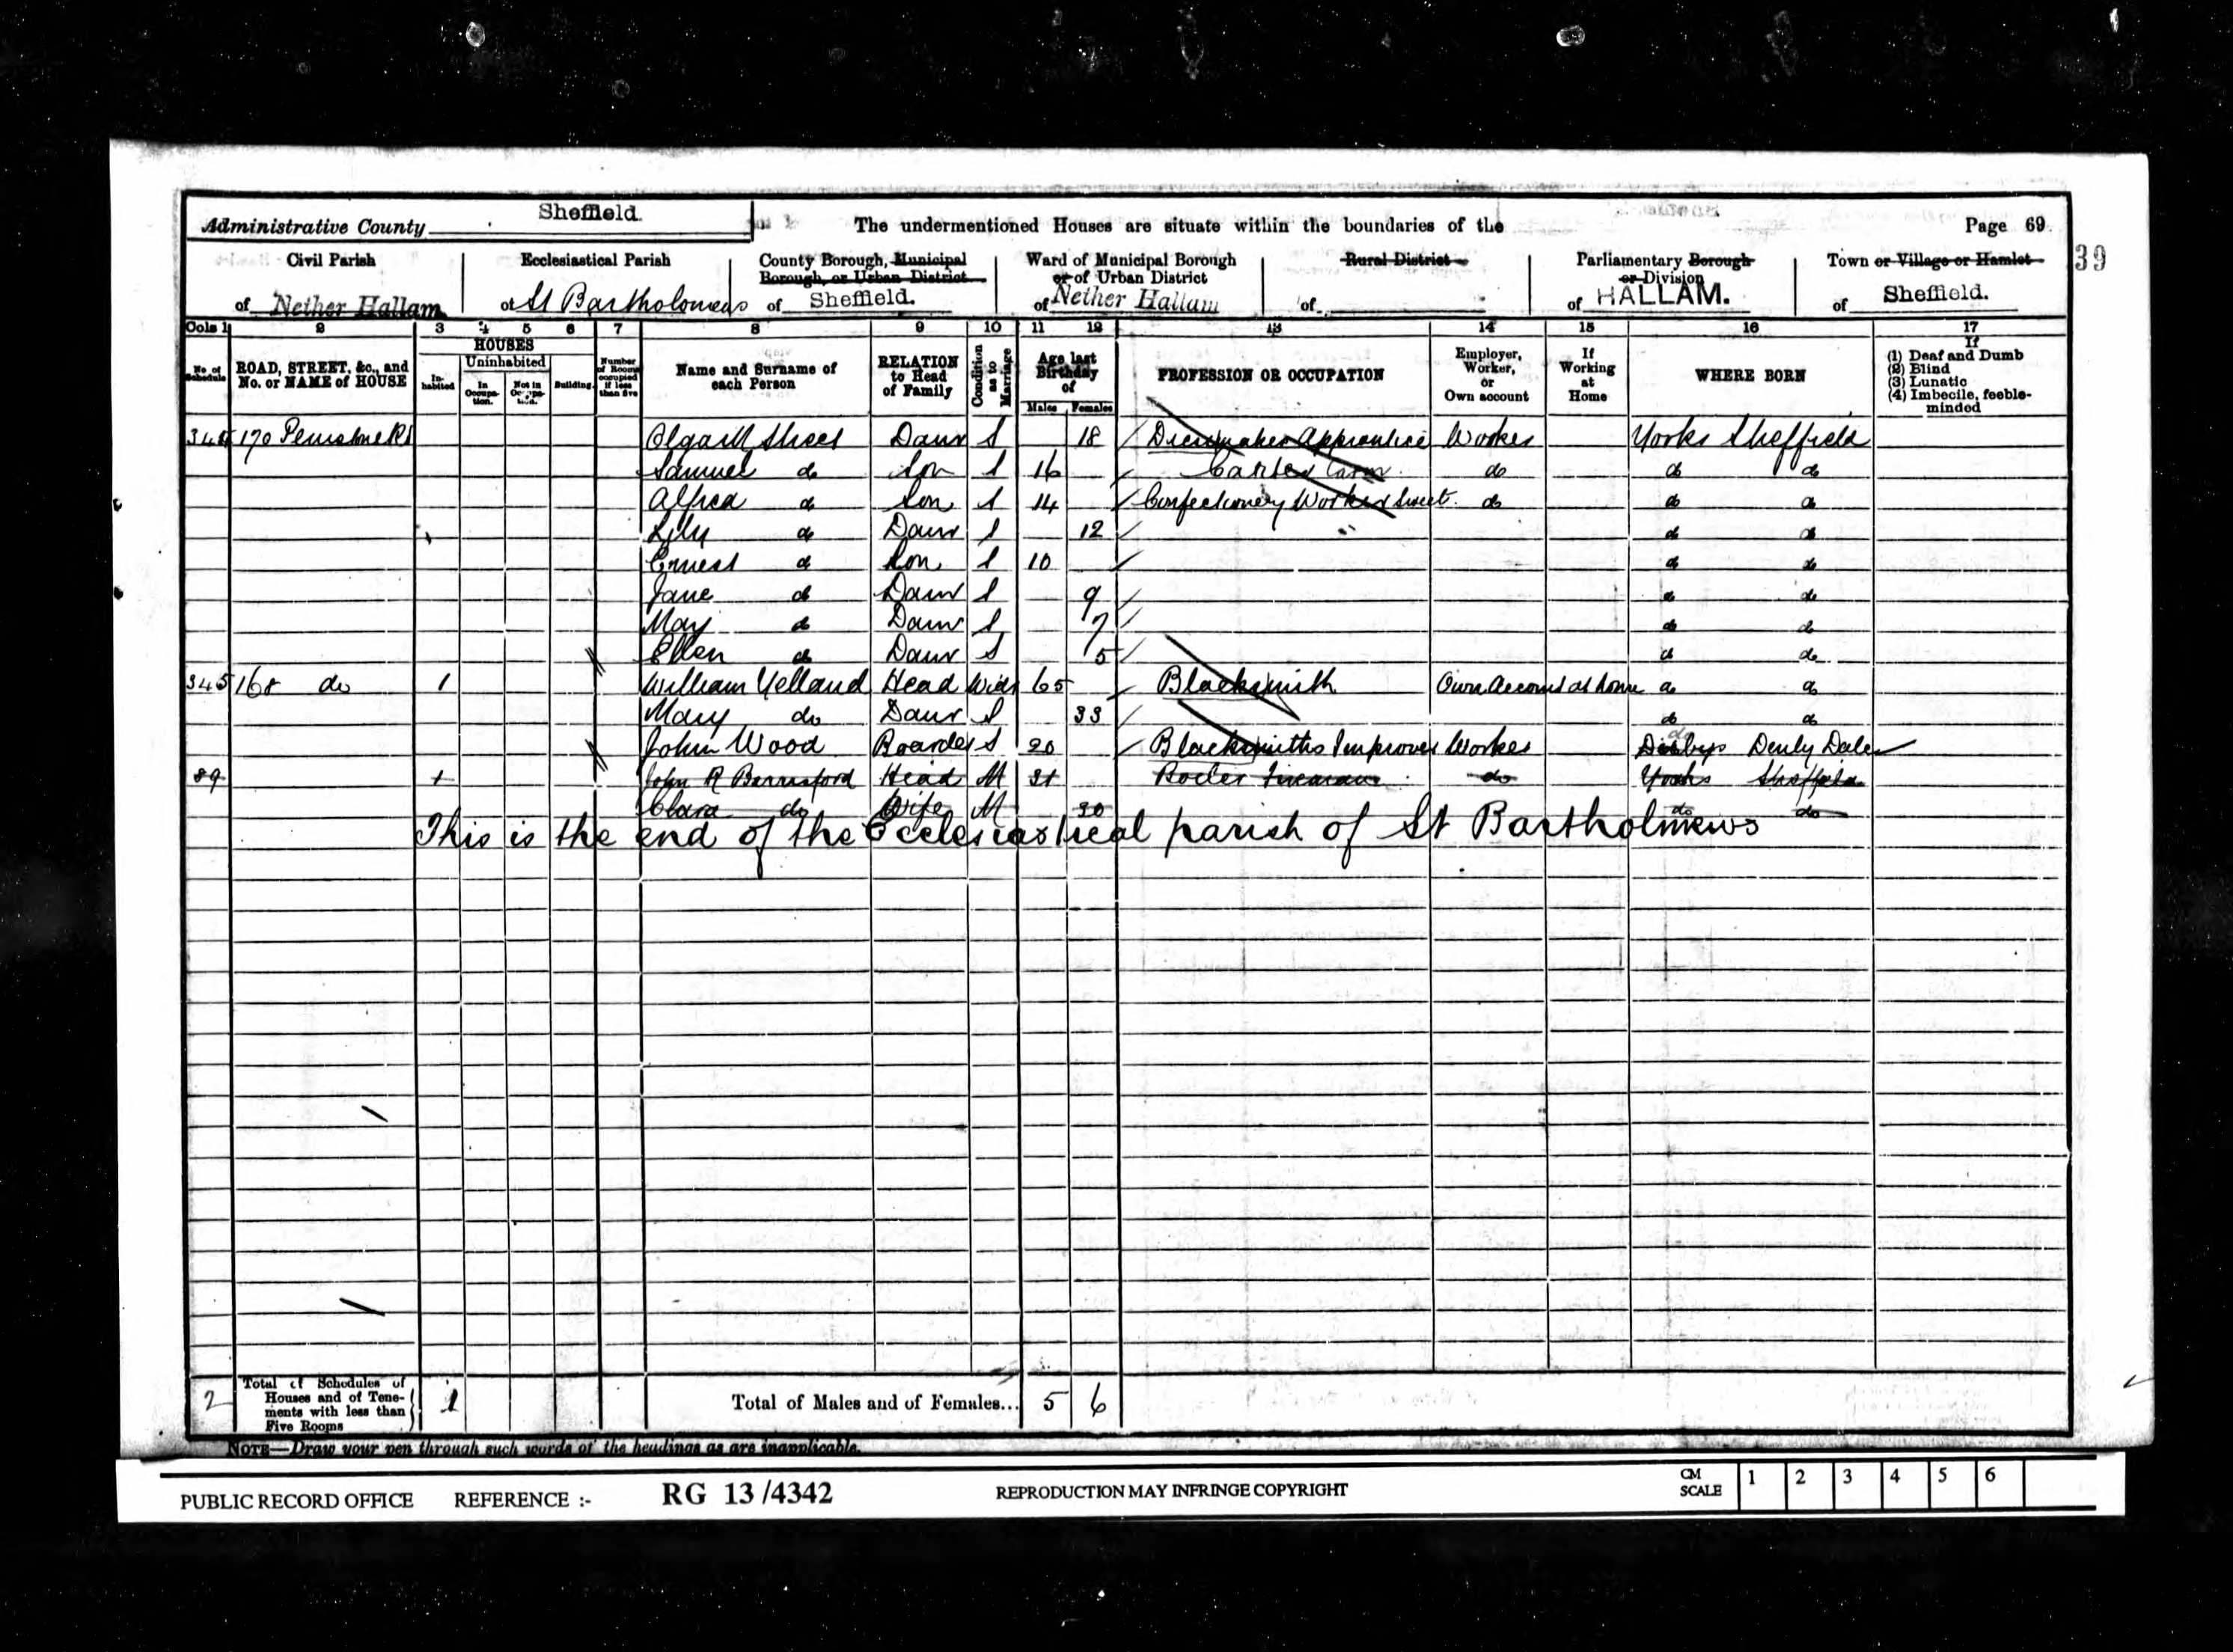 Administrative County Sheffield. The undermentioned Houses are situate within the boundaries of the Page 69.
39
Civil Parish of Nether Hallam
Ecclesiastical Parish of St Bartholomews
County Borough, Municipal Borough, or Urban District of Sheffield.
Ward of Municipal Borough or of Urban District of Nether Hallam
Rural District of
Parliamentary Borough or Division of HALLAM.
Town or Village or Hamlet of Sheffield.
Cols 1 2 3 4 5 6 7 8 9 10 11 12 13 14 15 16 17
No. of Schedule
ROAD, STREET, &c., and No. or NAME of HOUSE
HOUSES
Inhabited
Uninhabited
In Occupation.
Not in Occupation.
Building.
Number of Rooms occupied if less than five
Name and Surname of each Person
RELATION to Head of Family
Condition as to Marriage
Age last Birthday of
Males Females
PROFESSION OR OCCUPATION
Employer, Worker, or Own account
If Working at Home
WHERE BORN
If
(1) Deaf and Dumb
(2) Blind
(3) Lunatic
(4) Imbecile, feeble-minded
170 Penistone Rd Daur S 18 Dressmaker Apprentice Worker Yorks Sheffield
Samuel do Son S 16 Carter do do do
Alfred do Son S 14 Confectionery Worker Sweet do do do
Lily do Daur S 12 do do
Ernest do Son S 10 do do
Jane do Daur S 9 do do
May do Daur S 7 do do
Ellen do Daur S 5 do do
345 168 do 1 William Yelland Head Widr 65 Blacksmith Own Account at home do do
Mary do Daur S 33 do do
John Wood Boarder S 20 Blacksmiths Improver Worker do Denby Dale
89 1 John R Berresford Head M 31 Boiler Fireman do Yorks Sheffield
Clara do Wife M 30 do do
This is the end of the Ecclesiastical parish of St Bartholmews
2 Total of Schedules of Houses and of Tenements with less than Five Rooms 1 Total of Males and of Females... 5 6
NOTE—Draw your pen through such words of the headings as are inapplicable.
PUBLIC RECORD OFFICE REFERENCE :- RG 13/4342 REPRODUCTION MAY INFRINGE COPYRIGHT CM SCALE 1 2 3 4 5 6